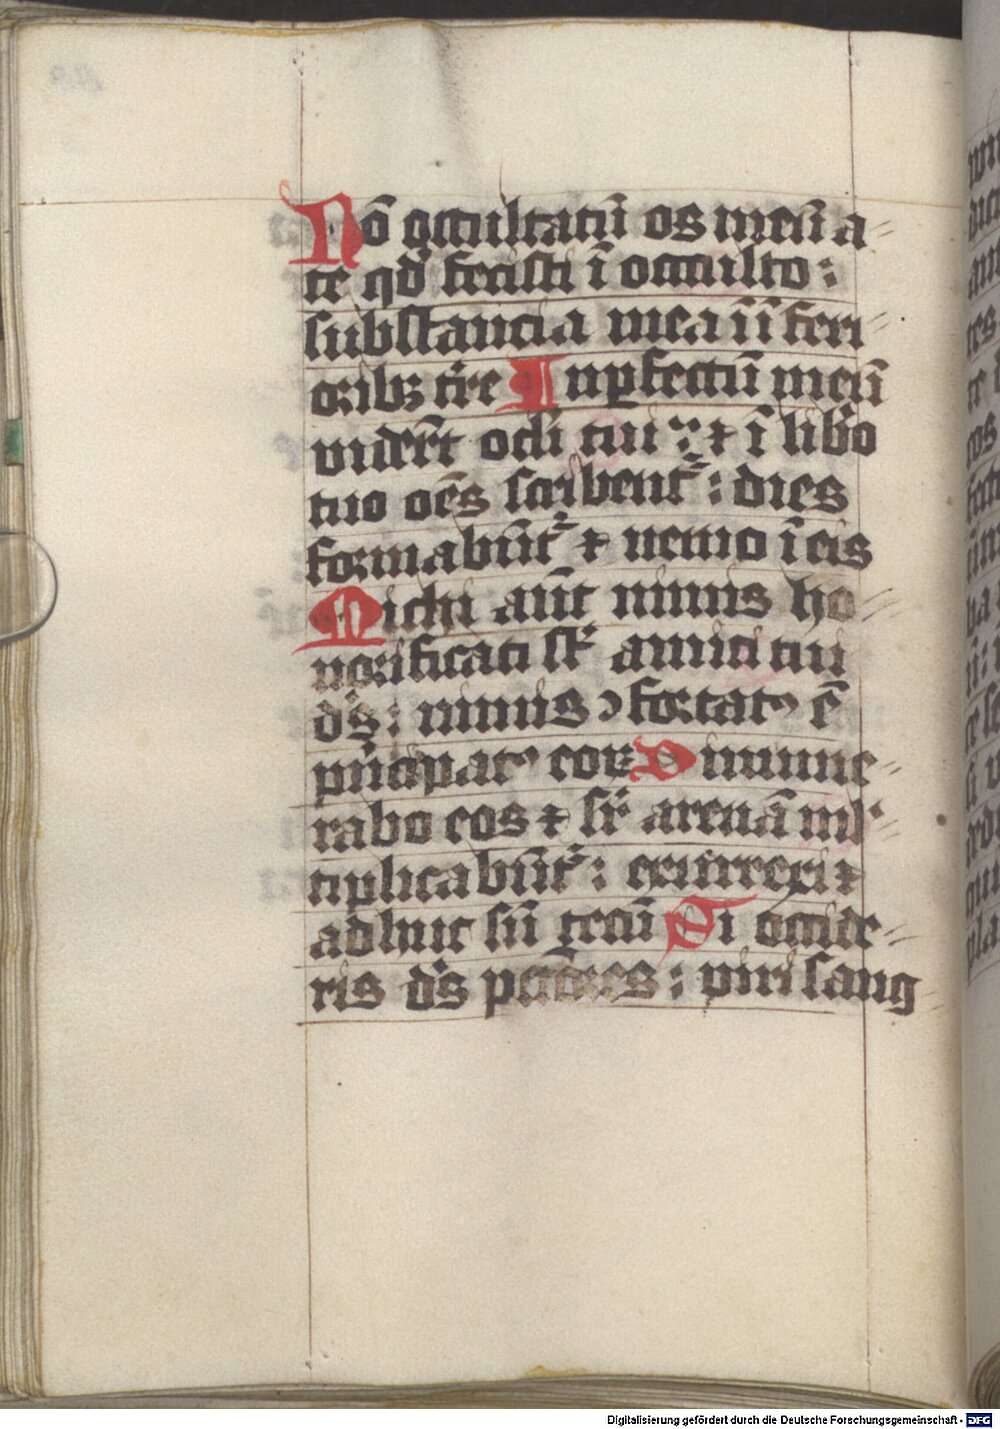 Nō occultatū os meū a
te qd̓ fecisti ī occulto :
substancia mea ī īferi
oribꝫ tre̓ Inꝑfectū meū
viderūt oc̓li tui : ⁊ ī lib̓o
tuo oēs scribent᷑ : dies
formabūt᷑ ⁊ nemo ī eis
Michi aūt nimis ho
norificati st̓ amici tui
ds̓ : nimis ꝯfortatꝰ ē
pn̓cipatꝰ eoꝝ Dinume
rabo eos ⁊ sr̓ arenā ml̓
tiplicabūt᷑ : exurrexi ⁊
adhuc sū tecū Si occide
ris ds̓ pctōres : viri sang
Digitalisierung gefördert durch die Deutsche Forschungsgemeinschaft - DFG